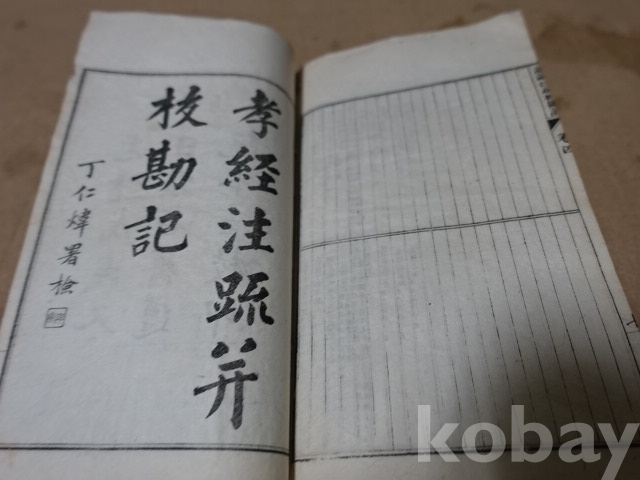 孝経注疏并
校勘記
丁仁煒署檢
kobay